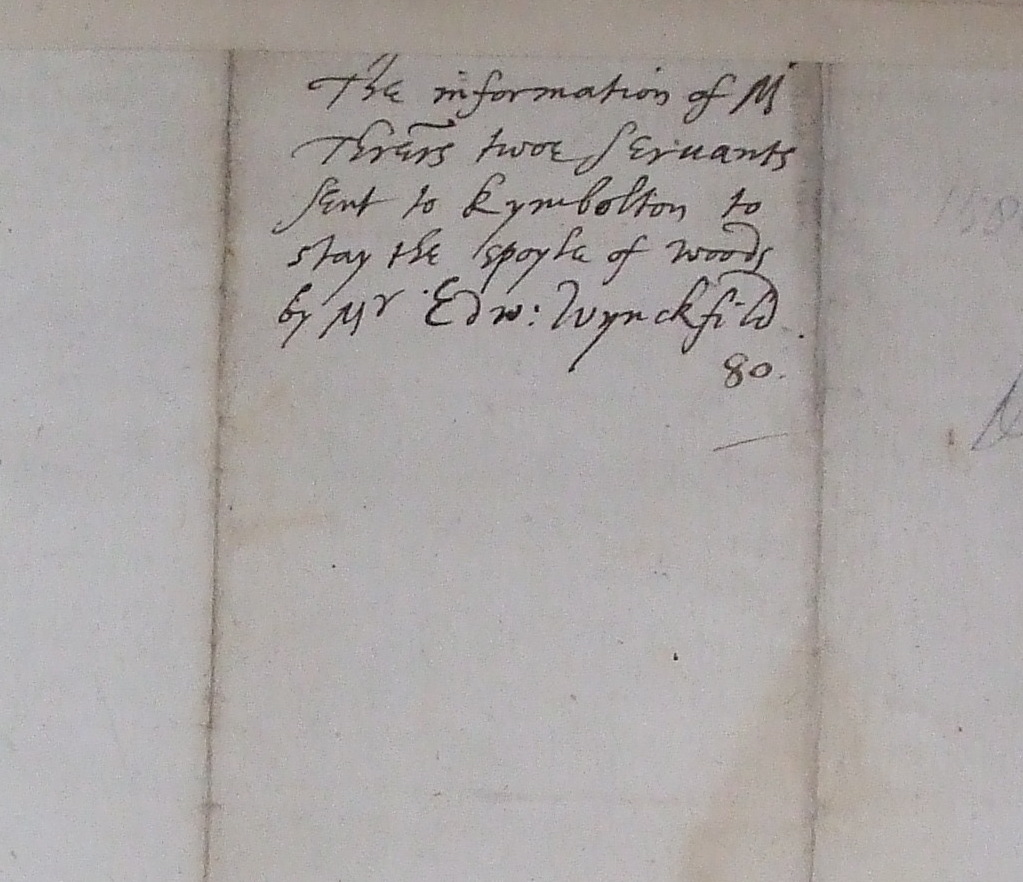 The information of Mr
twoe servants
sent to Kymbolton to
stay the spoyle of woods
by Mr Edw: Wynckfild.
80.
158